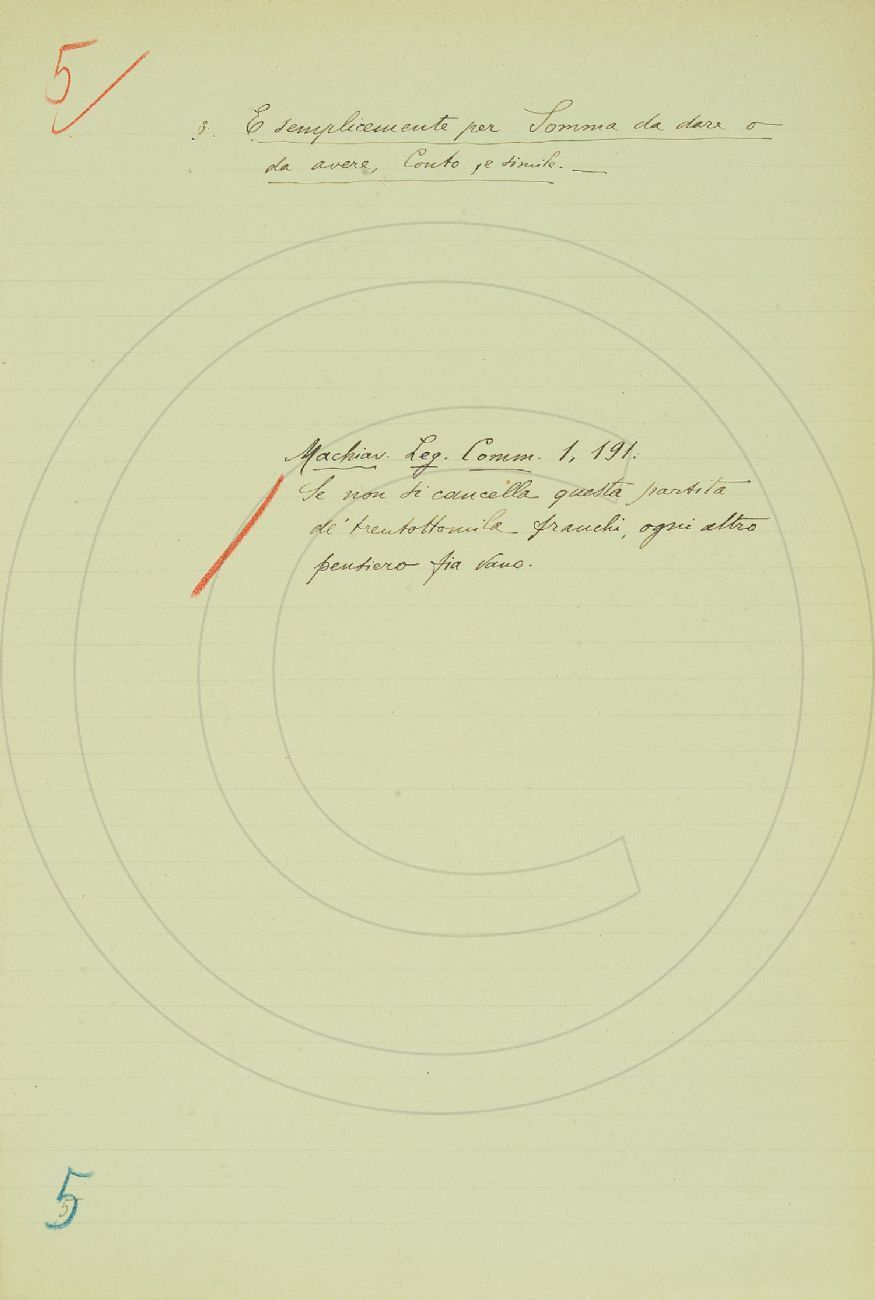 5
3. E semplicemente per Somma da dare o
da avere, Conto, e simile. —
Machiav. Leg. Comm. 1, 191:
Se non si cancella questa partita
de' trentottomila franchi, ogni altro
pensiero fia vano.
5
5